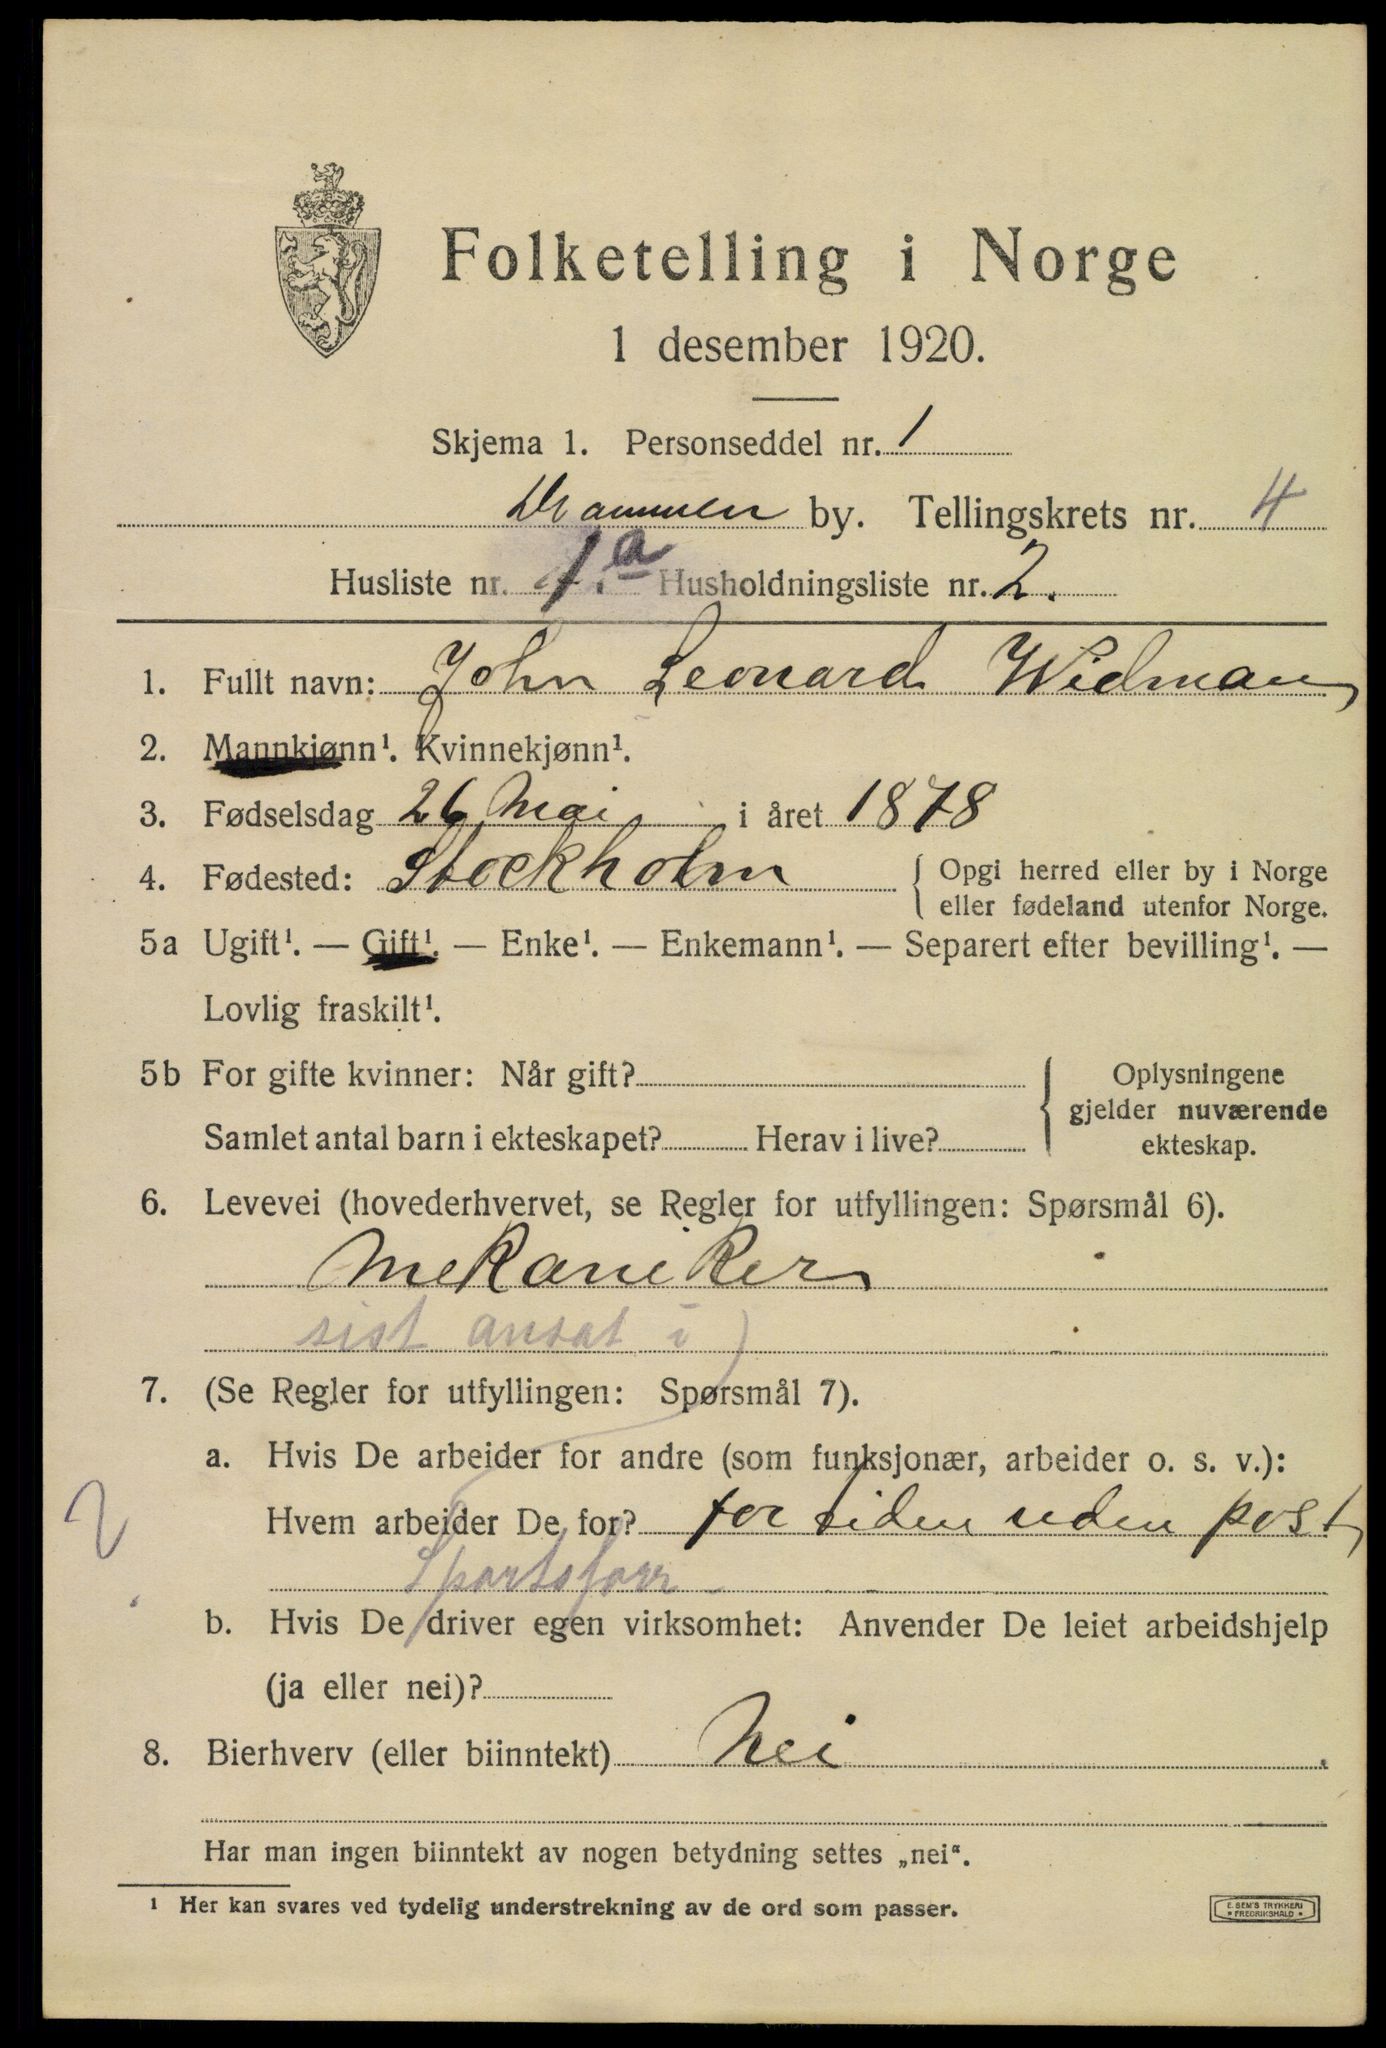 Folketelling i Norge
1 desember 1920.
Skjema 1. Personseddel nr. 1
Drammen by. Tellingskrets nr. 4
Husliste nr. 1.a Husholdningsliste nr. 2.
1. Fullt navn: John Leonard Widman
2. Mannkjønn¹. Kvinnekjønn¹.
3. Fødselsdag 26 Mai i året 1878
4. Fødested: Stockholm { Opgi herred eller by i Norge
eller fødeland utenfor Norge.
5a Ugift¹. — Gift¹. — Enke¹. — Enkemann¹. — Separert efter bevilling¹. —
Lovlig fraskilt¹.
5b For gifte kvinner: Når gift?
Samlet antal barn i ekteskapet? Herav i live?
{ Oplysningene
gjelder nuværende
ekteskap.
6. Levevei (hovederhvervet, se Regler for utfyllingen: Spørsmål 6).
Mekaniker
sist ansat i
7. (Se Regler for utfyllingen: Spørsmål 7).
a. Hvis De arbeider for andre (som funksjonær, arbeider o. s. v.):
Hvem arbeider De for? for tiden uden post
Sportsforr
b. Hvis De driver egen virksomhet: Anvender De leiet arbeidshjelp
(ja eller nei)?
8. Bierhverv (eller biinntekt) Nei
Har man ingen biinntekt av nogen betydning settes „nei“.
¹ Her kan svares ved tydelig understrekning av de ord som passer.
E. SEM'S TRYKKERI
* FREDRIKSHALD *